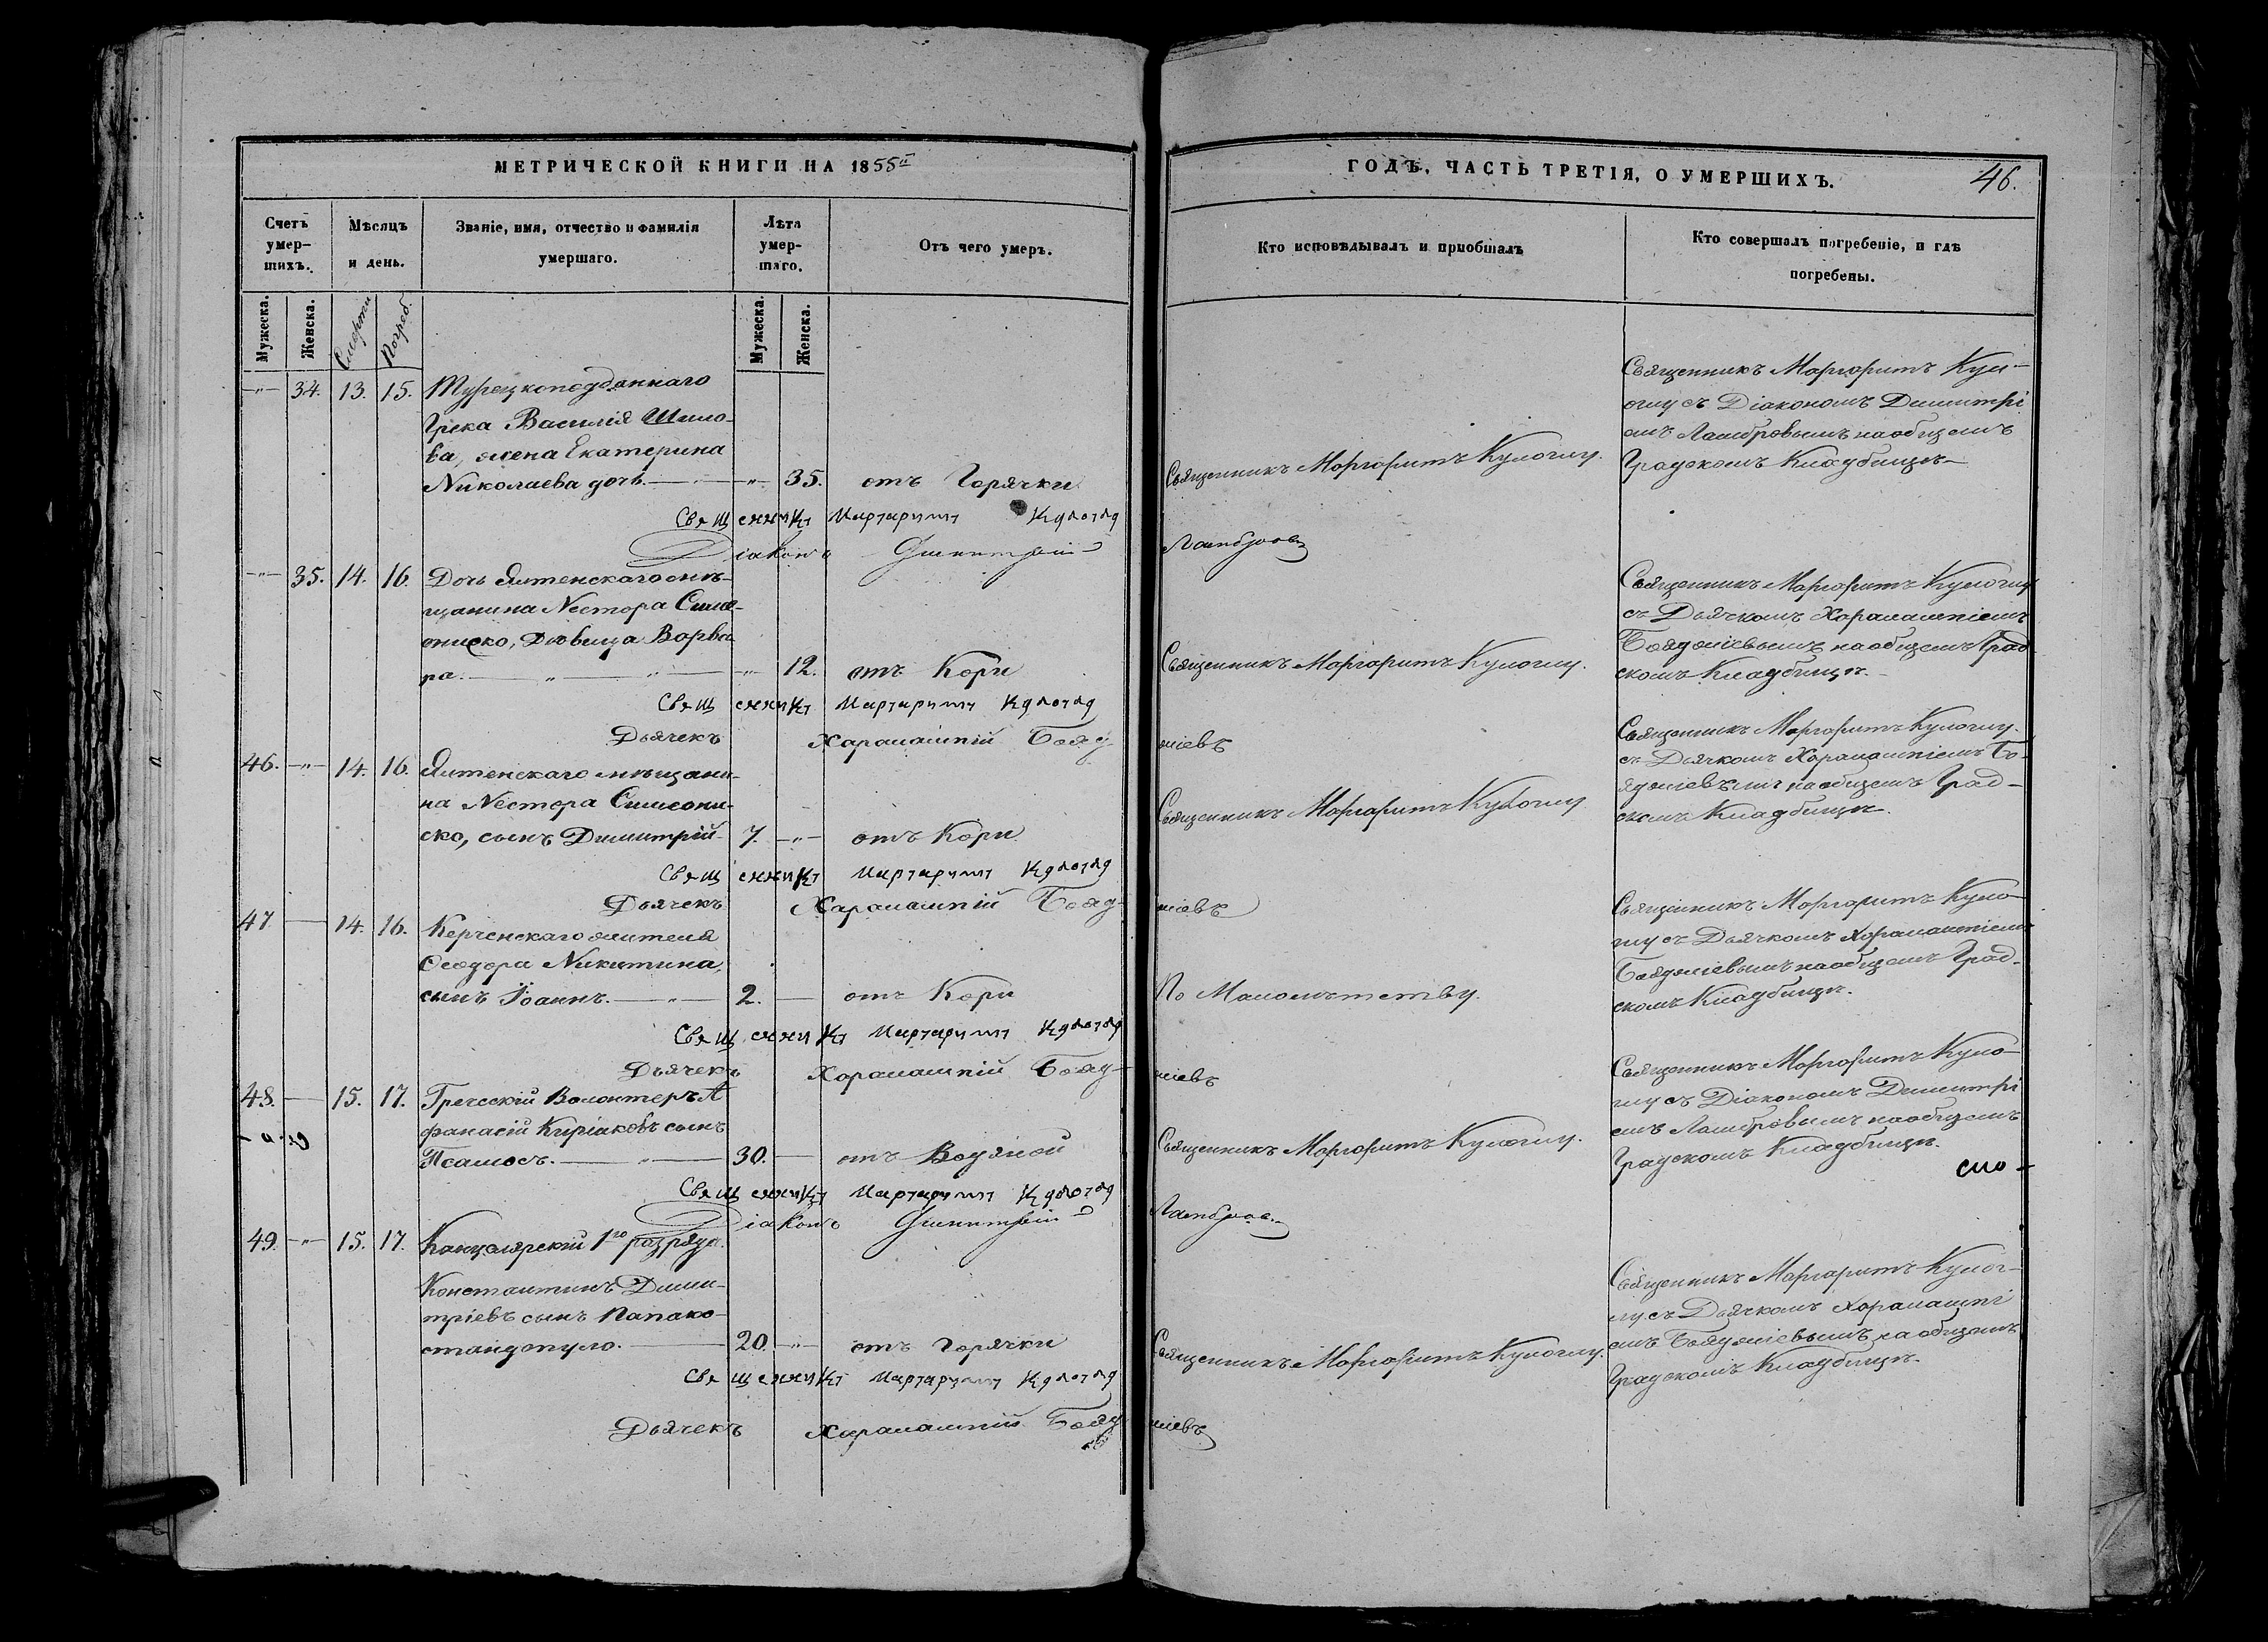 МЕТРИЧЕСКОЙ КНИГИ НА 1855й
ГОДЪ, ЧАСТЬ ТРЕТІЯ, О УМЕРШИХЪ.
46.
Счетъ умер-шихъ.
Мѣсяцъ и день.
Званіе, имя, отчество и фамилія умершаго.
Лѣта умер-шаго.
Отъ чего умеръ.
Кто исповѣдывалъ и приобщалъ
Кто совершалъ погребеніе, и гдѣ погребены.
Мужеска. Женска. Смерти Погреб. Мужеска. Женска.
—„— 34. 13. 15. Турецкоподданнаго
Грека Василія Шимо-
ва, жена Екатерина
Николаева дочь. — „ — 35. отъ Горячки
Священникъ Маргаритъ Кулоглу.
Священникъ Маргаритъ Кул-
оглу съ Діакономъ Димитрі
емъ Ламбровымъ на общемъ
Градскомъ Кладбищѣ—
Священникъ Маргаритъ Кулоглу
Діаконъ Димитрій Ламбровъ
—„— 35. 14. 16. Дочь Ялтенскаго мѣ-
щанина Нестора Симе-
ониско, Дѣвица Варва
ра. — „ — „ — 12. отъ Кори
Священникъ Маргаритъ Кулоглу.
Священникъ Маргаритъ Кулоглу
съ Дьячкомъ Харалампіемъ
Бояджіевымъ на общемъ Град
скомъ Кладбищѣ.
Священникъ Маргаритъ Кулоглу
Дьячекъ Харалампій Бояджіевъ
46. —„— 14. 16. Ялтенскаго мѣщани-
на Нестора Симеони-
ско, сынъ Димитрій 7. —„— отъ Кори.
Священникъ Маргаритъ Кулоглу
Священникъ Маргаритъ Кулоглу.
съ Дьячкомъ Харалампіемъ Бо-
яджіевымъ на общемъ Град-
скомъ Кладбищѣ.
Священникъ Маргаритъ Кулоглу
Дьячекъ Харалампій Бояджіевъ
47 — 14. 16. Керченскаго жителя
Ѳеодора Никитина,
сынъ Іоаннъ. — „ — 2. — отъ Кори
По Малолѣтству.
Священникъ Маргаритъ Куло-
глу съ Дьячкомъ Харалампіемъ
Бояджіевымъ на общемъ Град-
скомъ Кладбищѣ.
Священникъ Маргаритъ Кулоглу
Дьячекъ Харалампій Бояджіевъ
48. — 15. 17. Греческій Волонтеръ А
фанасій Киріаковъ сынъ
Псамосъ. — „ — 30. — отъ Водяной
Священникъ Маргаритъ Кулоглу.
Священникъ Маргаритъ Куло-
глу съ Діакономъ Димитрі
емъ Ламбровымъ на общемъ
Градскомъ Кладбищѣ.
Священникъ Маргаритъ Кулоглу
Діаконъ Димитрій Ламбровъ
49. —„— 15. 17. Канцелярскій 1го разряда
Константинъ Дими-
тріевъ сынъ Папако-
стандопуло. — 20. —„— отъ Горячки
Священникъ Маргаритъ Кулоглу.
Священникъ Маргаритъ Кулог-
лу съ Дьячкомъ Харалампі
емъ Бояджіевымъ на общемъ
Градскомъ Кладбищѣ.
Священникъ Маргаритъ Кулоглу
Дьячекъ Харалампій Бояджіевъ